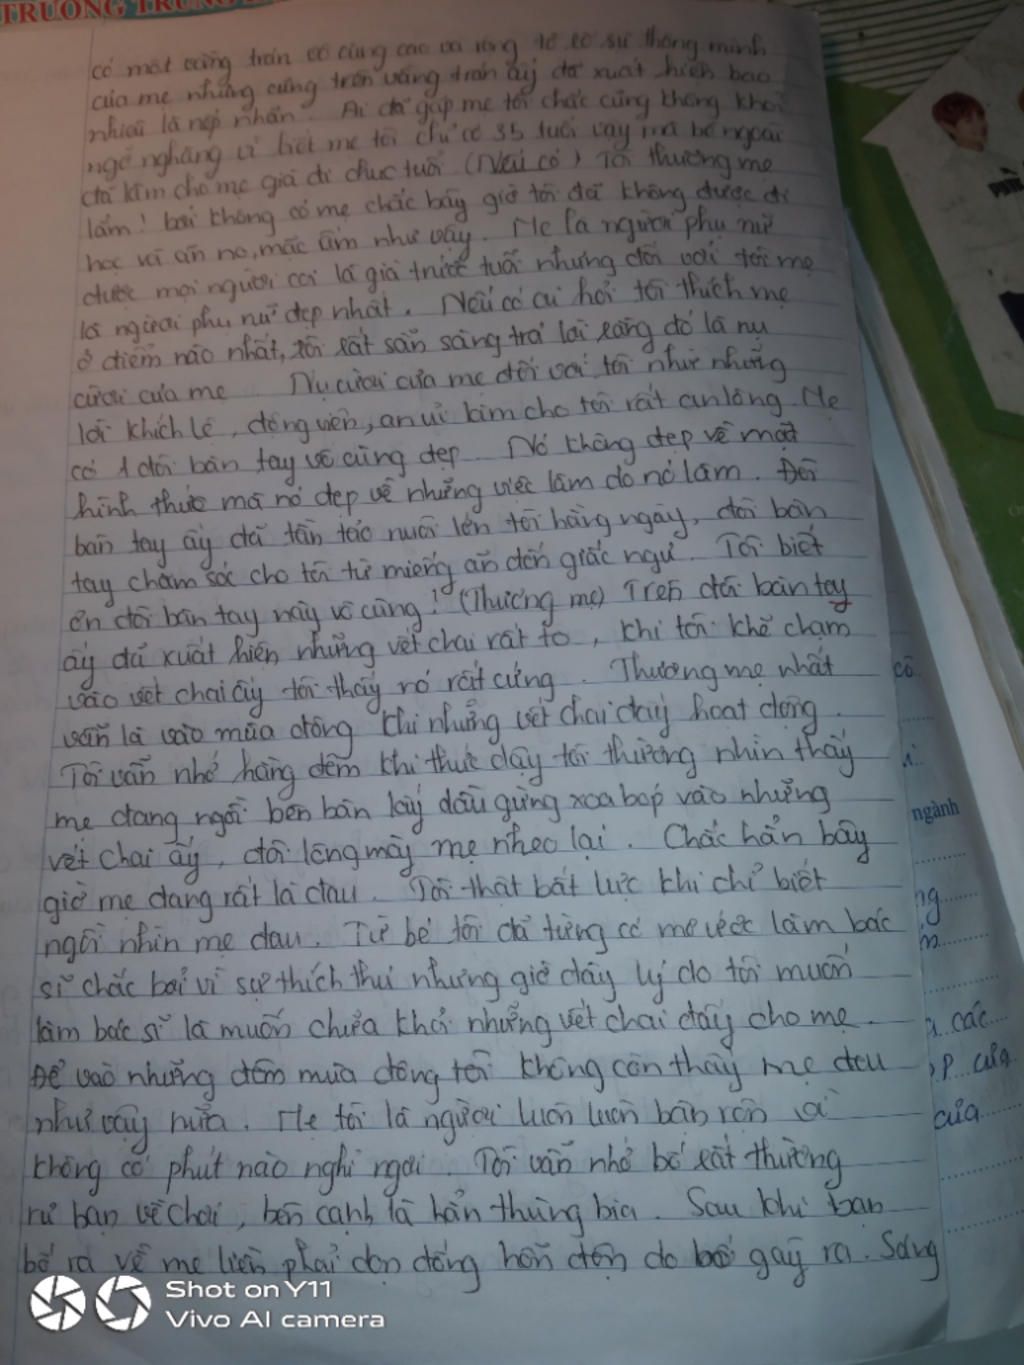 TRƯỜNG TRUNG
có một vầng trán vô cùng cao và rộng tỏ rõ sự thông minh
của mẹ nhưng cũng trên vầng trán ấy đã xuất hiện bao
nhiêu là nếp nhăn. Ai đã gặp mẹ tôi chắc cũng không khỏi
ngỡ nghàng vì biết mẹ tôi chỉ có 35 tuổi vậy mà bề ngoài
đã làm cho mẹ già đi chục tuổi (Nếu có) Tôi thương mẹ
lắm! bởi không có mẹ chắc bây giờ tôi đã không được đi
học và ăn no, mặc ấm như vậy. Mẹ là người phụ nữ
được mọi người coi là già trước tuổi nhưng đối với tôi mẹ
là người phụ nữ đẹp nhất. Nếu có ai hỏi tôi thích mẹ
ở điểm nào nhất, tôi rất sẵn sàng trả lời rằng đó là nụ
cười của mẹ Nụ cười của mẹ đối với tôi như những
lời khích lệ, động viên, an ủi làm cho tôi rất an lòng. Mẹ
có 1 đôi bàn tay vô cùng đẹp. Nó không đẹp về mặt
hình thức mà nó đẹp về những việc làm do nó làm. Đôi
bàn tay ấy đã tần tảo nuôi lớn tôi hằng ngày, đôi bàn
tay chăm sóc cho tôi từ miếng ăn đến giấc ngủ. Tôi biết
ơn đôi bàn tay này vô cùng! (Thương mẹ) Trên đôi bàn tay
ấy đã xuất hiện những vết chai rất to, khi tôi khẽ chạm
vào vết chai ấy tôi thấy nó rất cứng. Thương mẹ nhất
vẫn là vào mùa đông khi những vết chai dấy hoạt động.
Tôi vẫn nhớ hằng đêm khi thức dậy tôi thường nhìn thấy
mẹ đang ngồi bên bàn lấy dầu gừng xoa bóp vào những
vết chai ấy, đôi lông mày mẹ nheo lại. Chắc hẳn bây
giờ mẹ đang rất là đau. Tôi thật bất lực khi chỉ biết
ngồi nhìn mẹ đau. Từ bé tôi đã từng có mơ ước làm bác
sĩ chắc bởi vì sự thích thú nhưng giờ đây lý do tôi muốn
làm bác sĩ là muốn chữa khỏi những vết chai đấy cho mẹ.
Để vào những đêm mùa đông tôi không còn thấy mẹ đau
như vậy nữa. Mẹ tôi là người luôn luôn bận rộn và
không có phút nào nghỉ ngơi. Tôi vẫn nhớ bố rất thường
rủ bạn về chơi, bên cạnh là hẳn thùng bia. Sau khi bạn
bố ra về mẹ liền phải dọn đống hỗn độn do bố gây ra. Sáng
cô
ngành
các
P của
của
Shot on Y11
Vivo AI camera